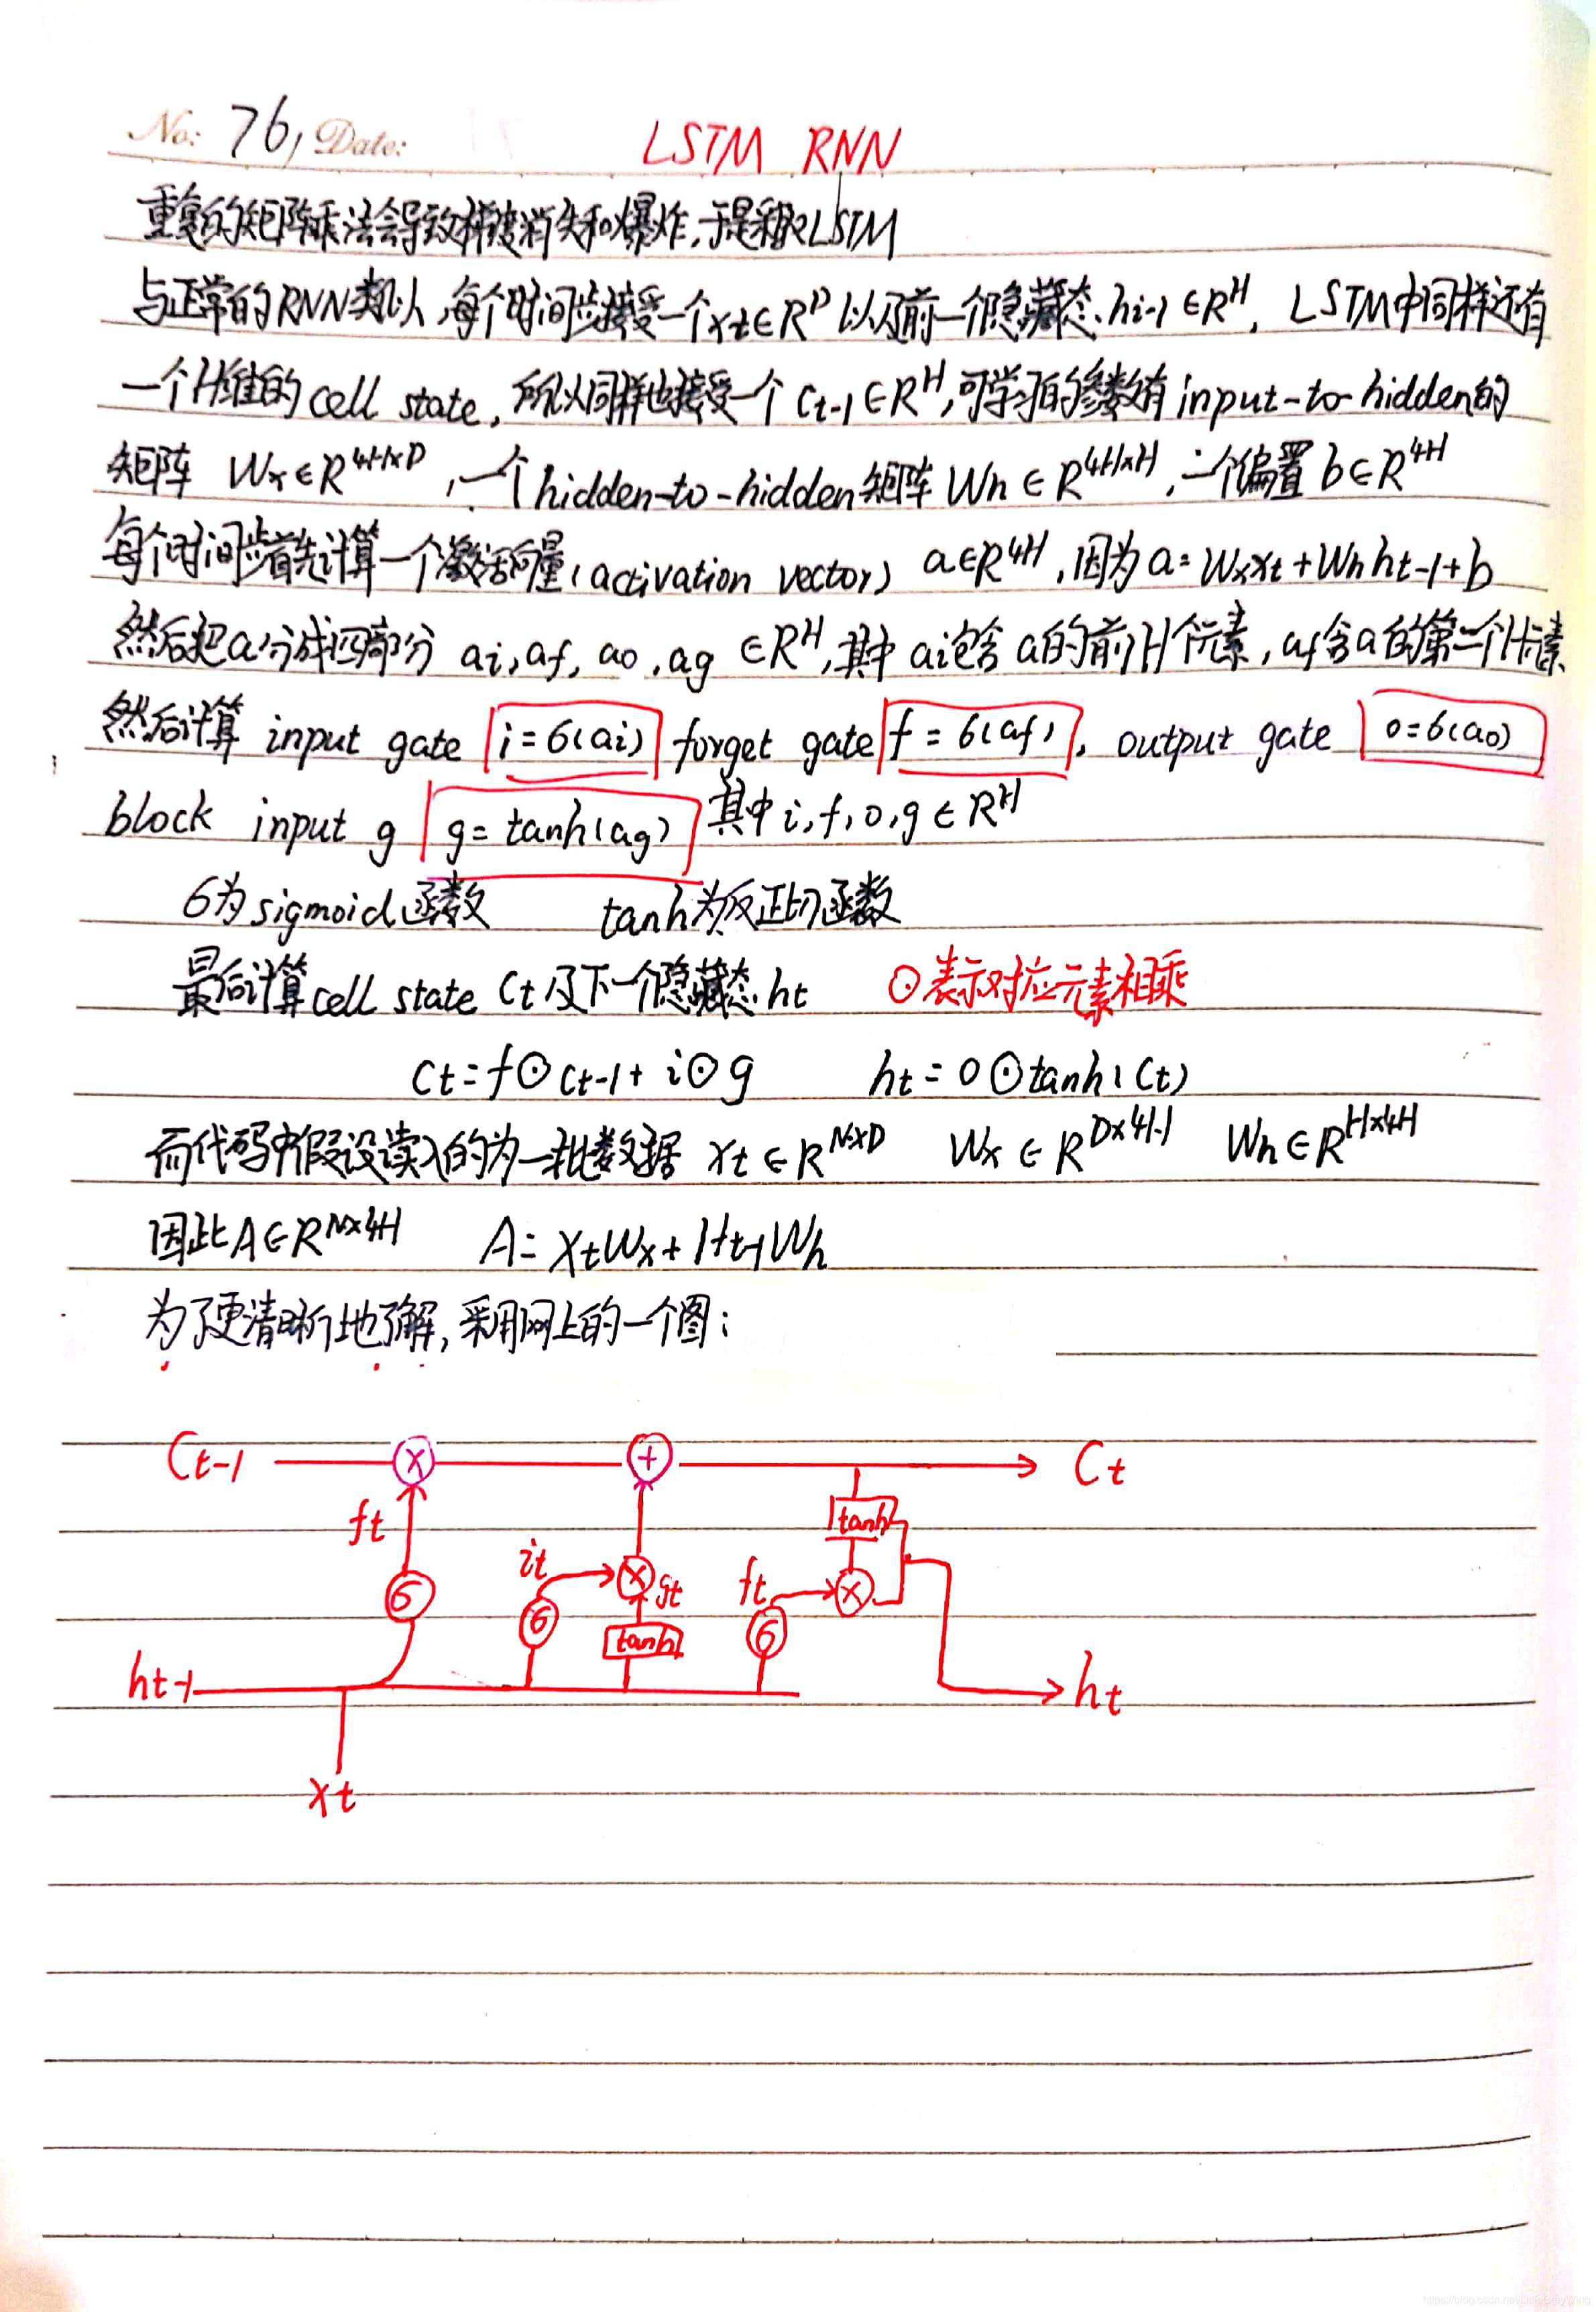 No: 76, Date:
LSTM RNN
重复的矩阵乘法会导致梯度消失和爆炸,于是采取LSTM
与正常的RNN类似,每个时间步接受一个xt∈R^D以及前一个隐藏态hi-1∈R^H, LSTM中同样还有
一个H维的cell state,所以同样也接受一个Ct-1∈R^H,可学习的参数有input-to-hidden的
矩阵 Wx∈R^4H×D,一个hidden-to-hidden矩阵Wh∈R^4H×H,一个偏置b∈R^4H
每个时间步首先计算一个激活向量(activation vector) a∈R^4H,因为a=Wxxt+Whht-1+b
然后把a分成四部分 ai,af,ao,ag∈R^H,其中ai包含a的前H个元素,af含a的第二个H元素
然后计算 input gate i=6(ai) forget gate f=6(af), output gate o=6(ao)
block input g g=tanh(ag) 其中i,f,o,g∈R^H
6为sigmoid函数 tanh为反正切函数
最后计算cell state Ct及下一个隐藏态ht ⊙表示对应元素相乘
Ct=f⊙Ct-1+i⊙g ht=o⊙tanh(Ct)
而代码中假设读入的为一批数据 xt∈R^N×D Wx∈R^D×4H Wh∈R^H×4H
因此A∈R^N×4H A=XtWx+Ht-1Wh
为了更清晰地了解,采用网上的一个图:
Ct-1 × + Ct
ft tanh
it × gt ft ×
6 6 tanh 6
ht-1 ht
xt